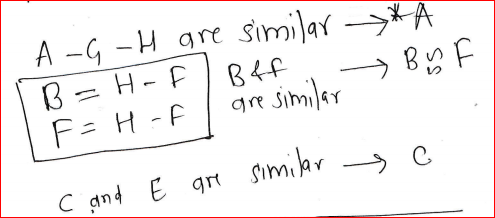 A - G - H are similar → *A
B = H - F
F = H - F
B & f are similar → B SS F
C and E are similar → C